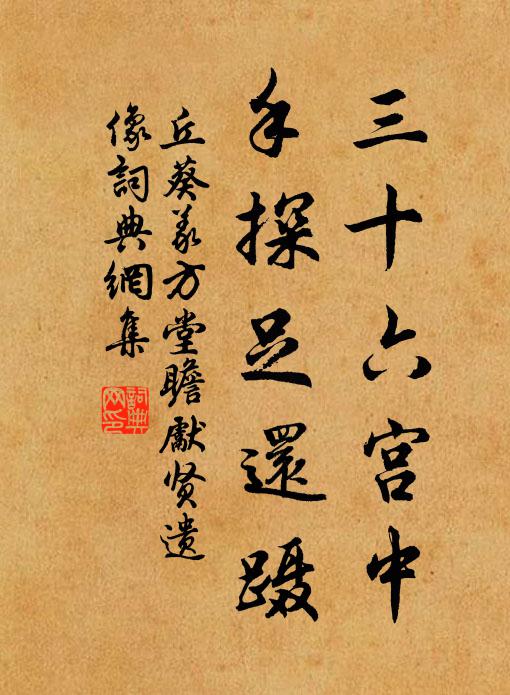 三十六宫中
手探足還蹑
丘葵義方堂瞻獻贤遗
像詞典網集
詞典
网印